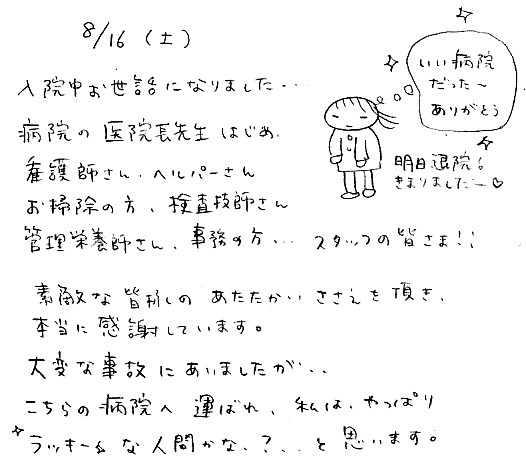 8/16 (土)
いい病院
だった〜
ありがとう
入院中お世話になりました...
病院の医院長先生はじめ、
看護師さん、ヘルパーさん
お掃除の方、検査技師さん
管理栄養師さん、事務の方... スタッフの皆さま!!
明日退院♪
きまりました〜♡
素敵な皆様のあたたかいささえを頂き、
本当に感謝しています。
大変な事故にあいましたが...
こちらの病院へ運ばれ、私は、やっぱり
ラッキーな人間かな、?...と思います。